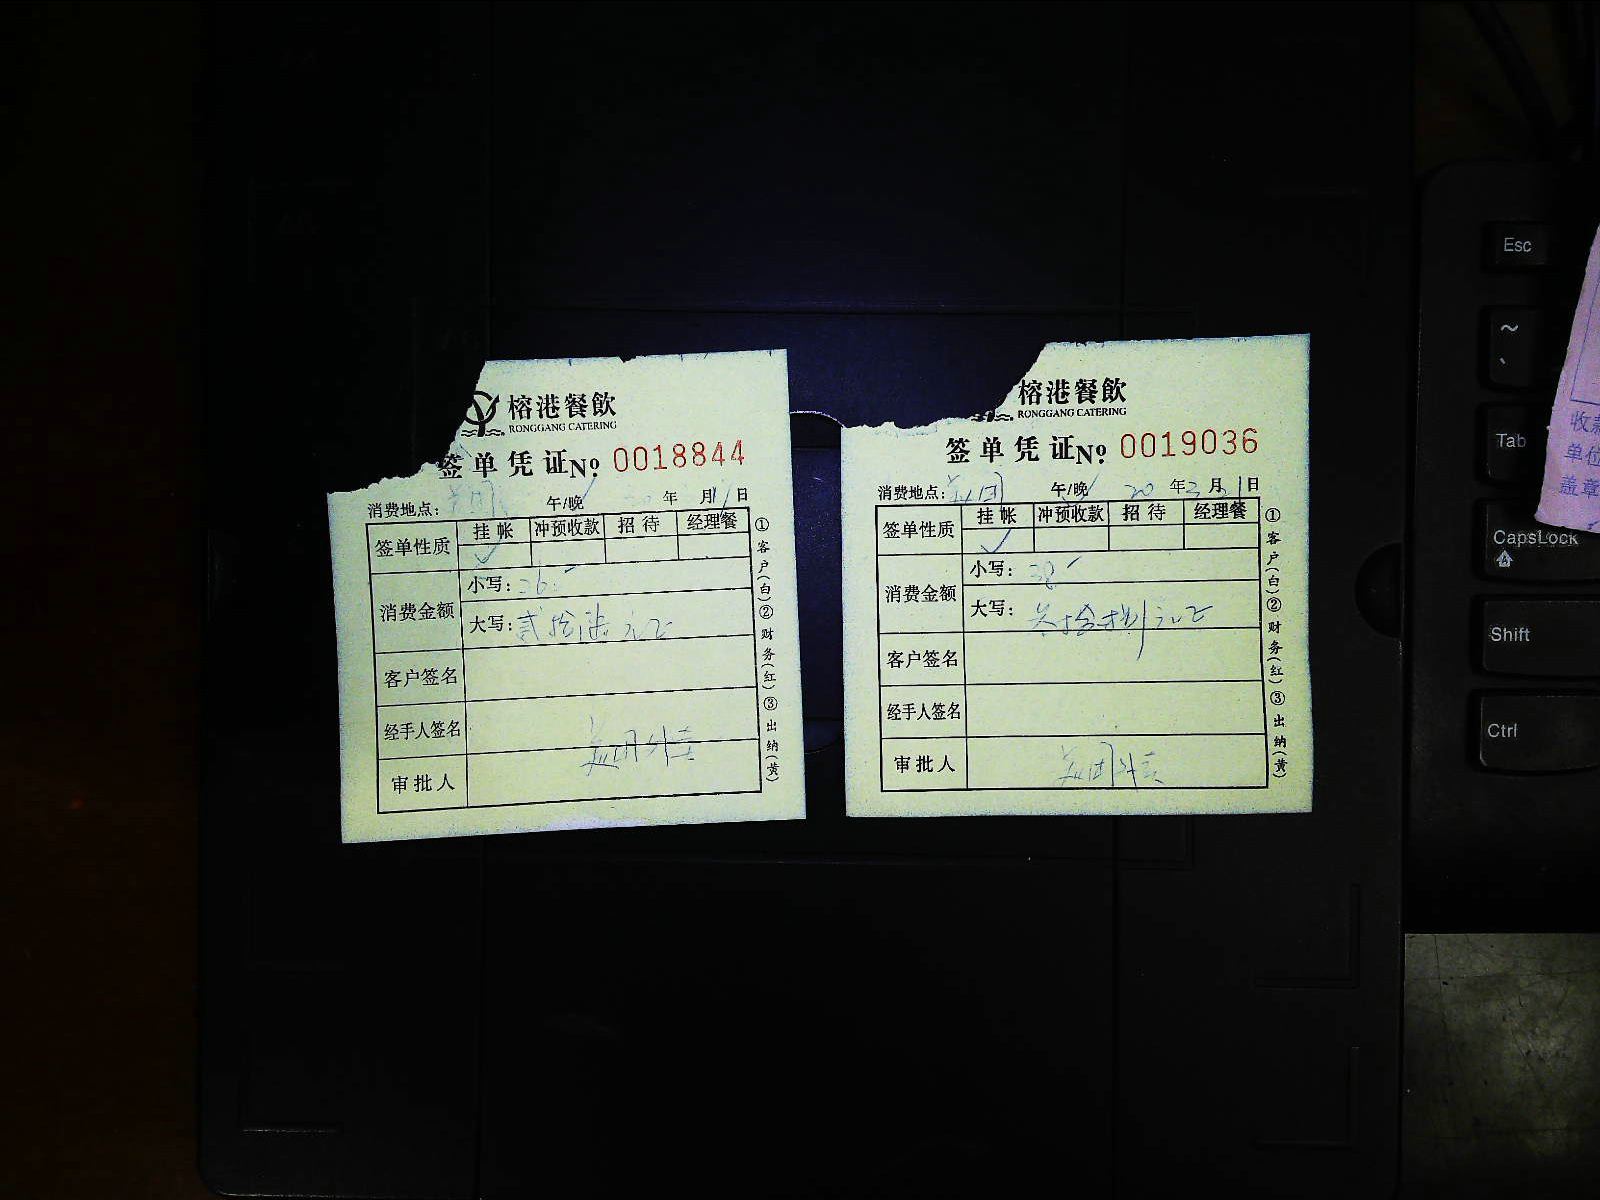 榕港餐飲
RONGGANG CATERING
签单凭证№ 0018844
消费地点：美团 午/晚 年 月 日
签单性质 挂帐 冲预收款 招待 经理餐
✓
消费金额 小写：
大写：贰拾柒元正
客户签名
经手人签名
审批人 美团外卖
①客户(白)②财务(红)③出纳(黄)
榕港餐飲
RONGGANG CATERING
签单凭证№ 0019036
消费地点：美团 午/晚 20 年 月 日
签单性质 挂帐 冲预收款 招待 经理餐
✓
消费金额 小写：
大写：叁拾捌元正
客户签名
经手人签名
审批人 美团外卖
①客户(白)②财务(红)③出纳(黄)
Esc
~
Tab
CapsLock
Shift
Ctrl
收款
单位
盖章